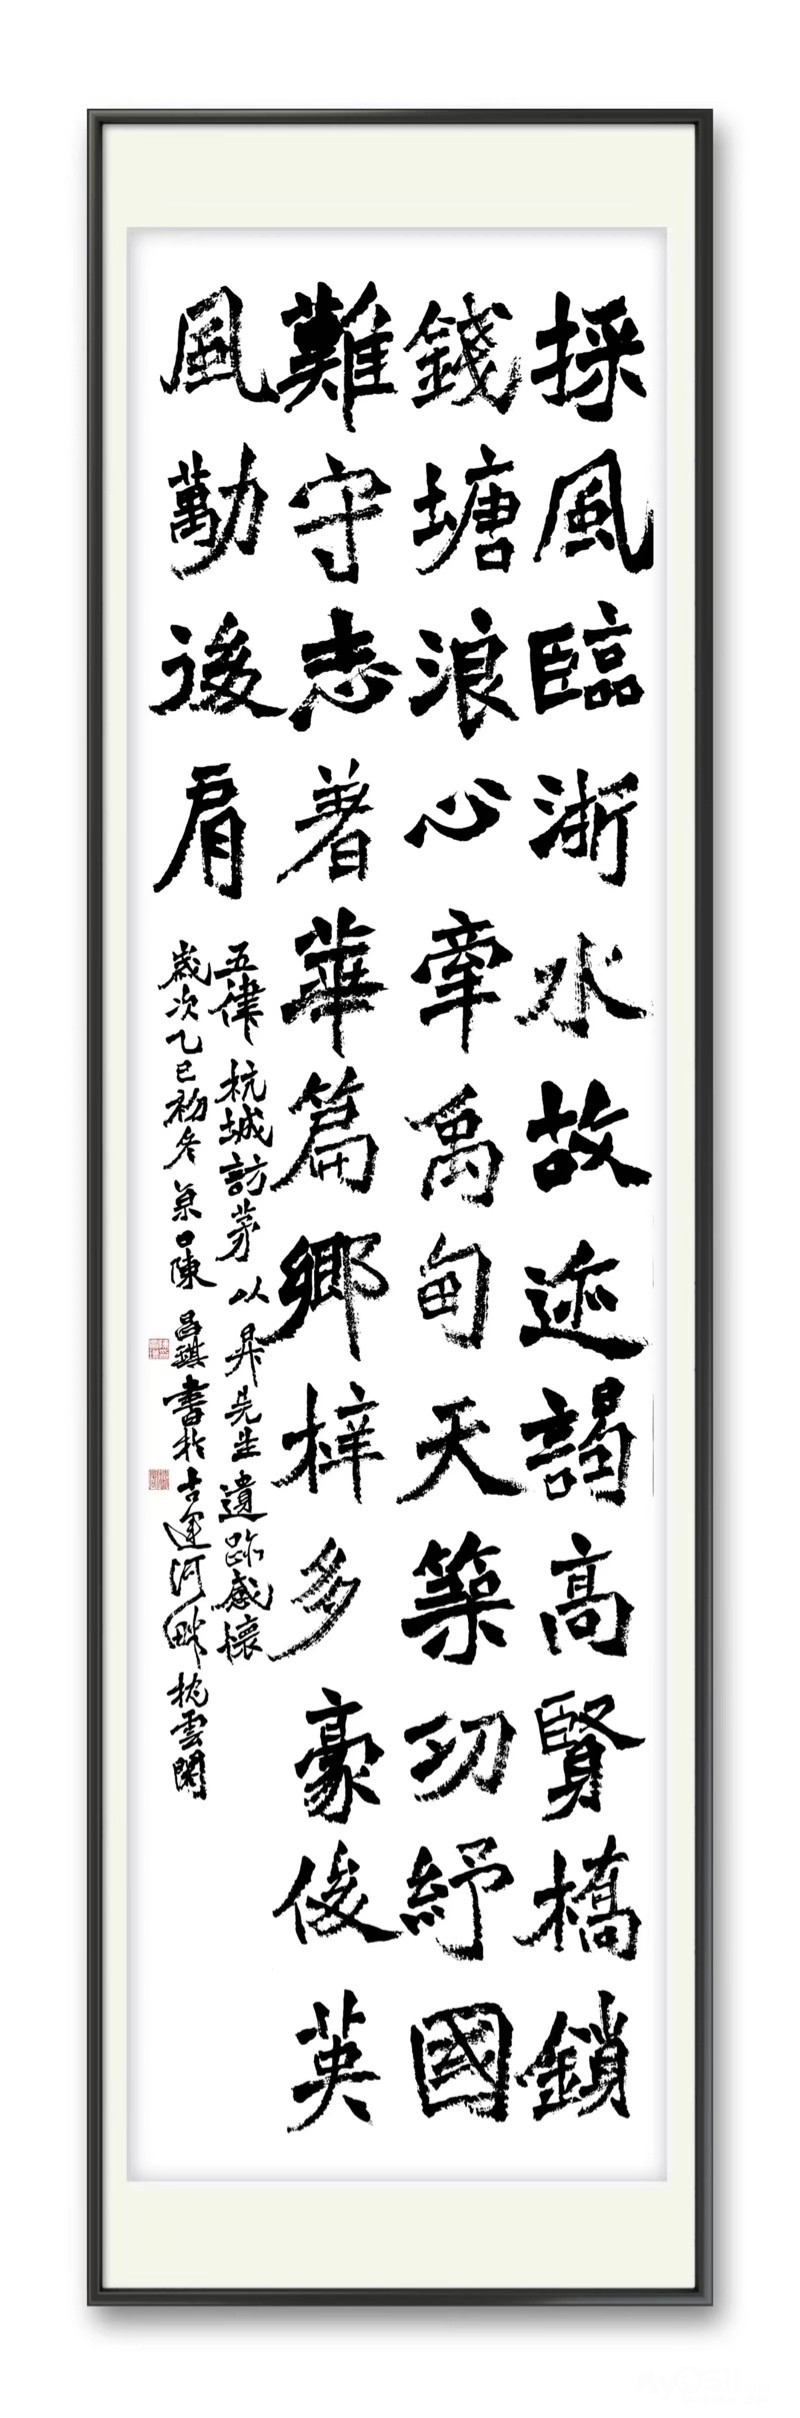 採風臨浙水故迹謁高賢橋鎖
錢塘浪心牽禹甸天築功紓國
難守志著華篇鄉梓多豪俊英
風勱後肩
五律 杭城訪茅以昇先生遺跡感懷
歲次乙巳初冬 京口陳昌琪書於古運河畔枕雲閣